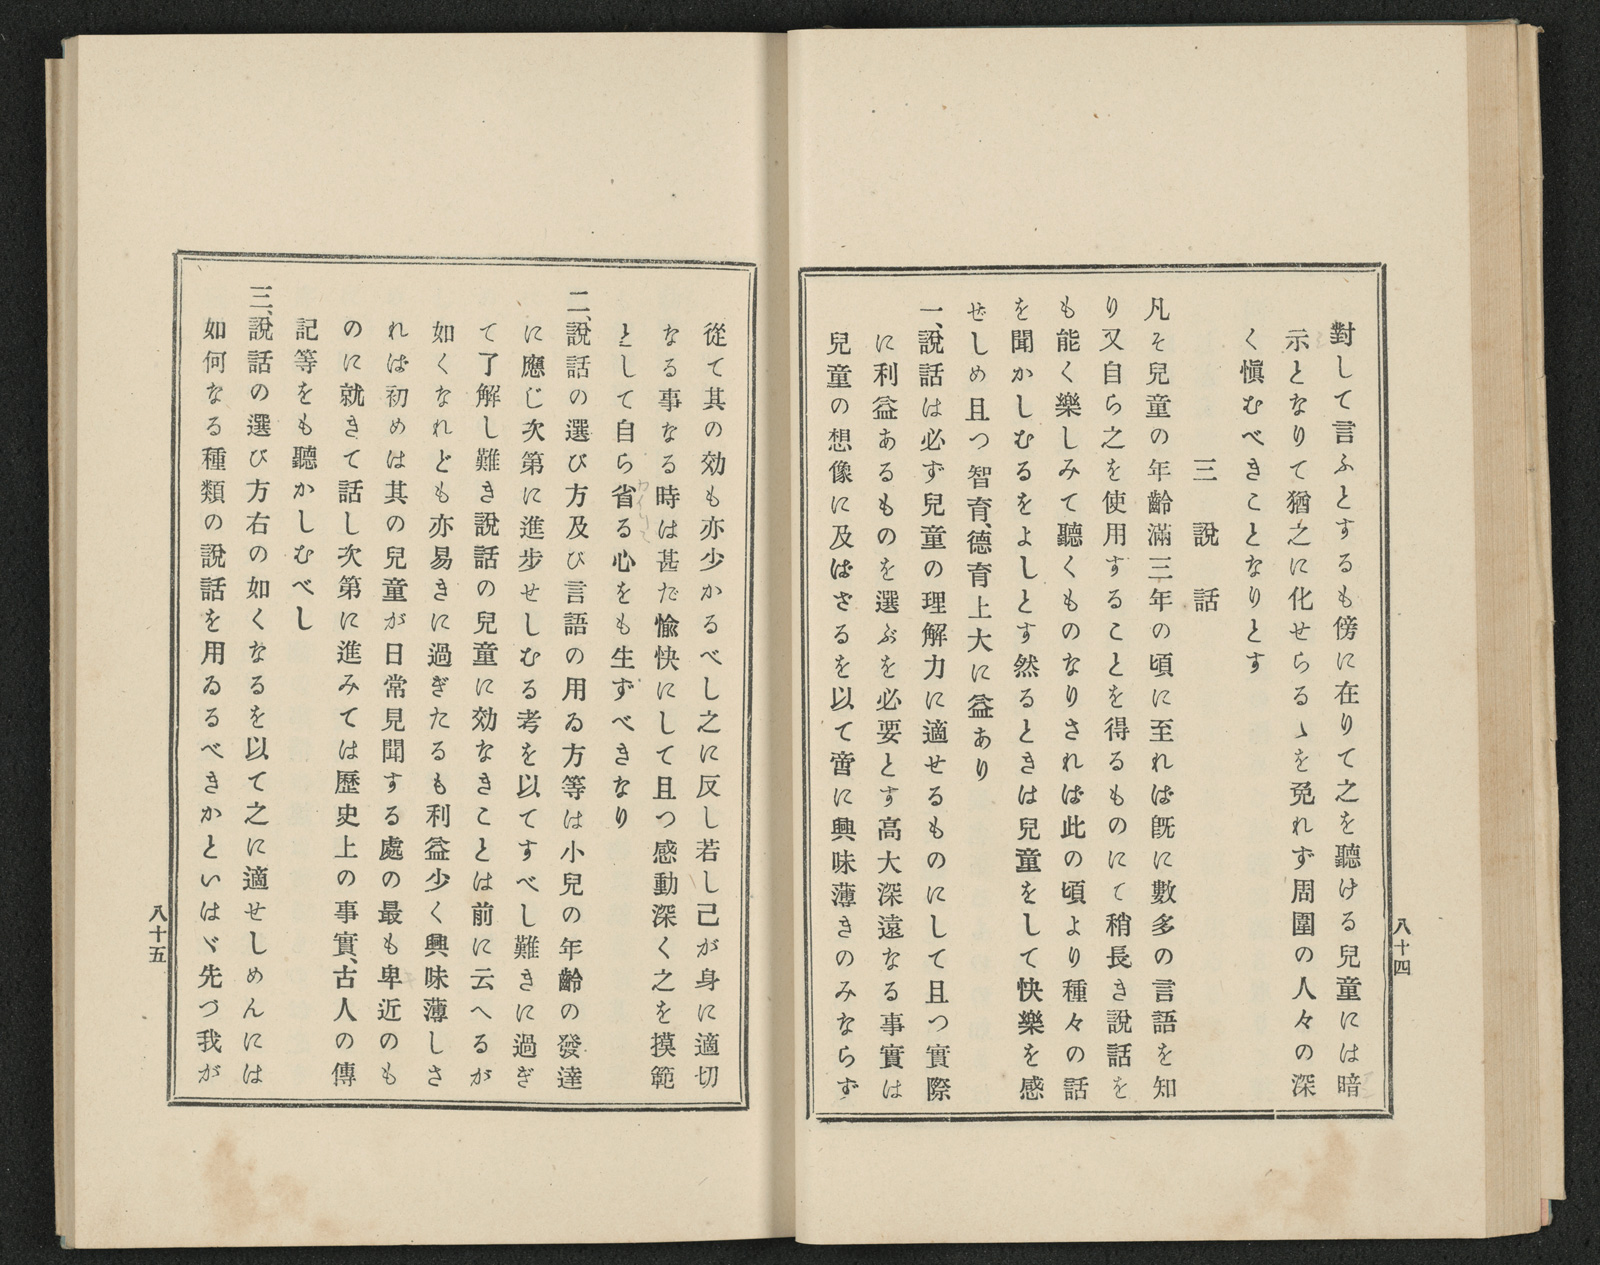 對して言ふとするも傍に在りて之を聽ける兒童には暗
示となりて猶之に化せらるゝを免れず周圍の人々の深
く愼むべきことなりとす
三　說　話
凡そ兒童の年齡滿三年の頃に至れば旣に數多の言語を知
り又自ら之を使用することを得るものにて稍長き說話を
も能く樂しみて聽くものなりされば此の頃より種々の話
を聞かしむるをよしとす然るときは兒童をして快樂を感
ぜしめ且つ智育、德育上大に益あり
一、說話は必ず兒童の理解力に適せるものにして且つ實際
に利益あるものを選ぶを必要とす高大深遠なる事實は
兒童の想像に及ばざるを以て啻に興味薄きのみならず
八十四
從て其の効も亦少かるべし之に反し若し己が身に適切
なる事なる時は甚だ愉快にして且つ感動深く之を摸範
として自ら省る心をも生ずべきなり
二、說話の選び方及び言語の用ゐ方等は小兒の年齡の發達
に應じ次第に進步せしむる考を以てすべし難きに過ぎ
て了解し難き說話の兒童に効なきことは前に云へるが
如くなれども亦易きに過ぎたるも利益少く興味薄しさ
れば初めは其の兒童が日常見聞する處の最も卑近のも
のに就きて話し次第に進みては歷史上の事實、古人の傳
記等をも聽かしむべし
三、說話の選び方右の如くなるを以て之に適せしめんには
如何なる種類の說話を用ゐるべきかといはゞ先づ我が
八十五